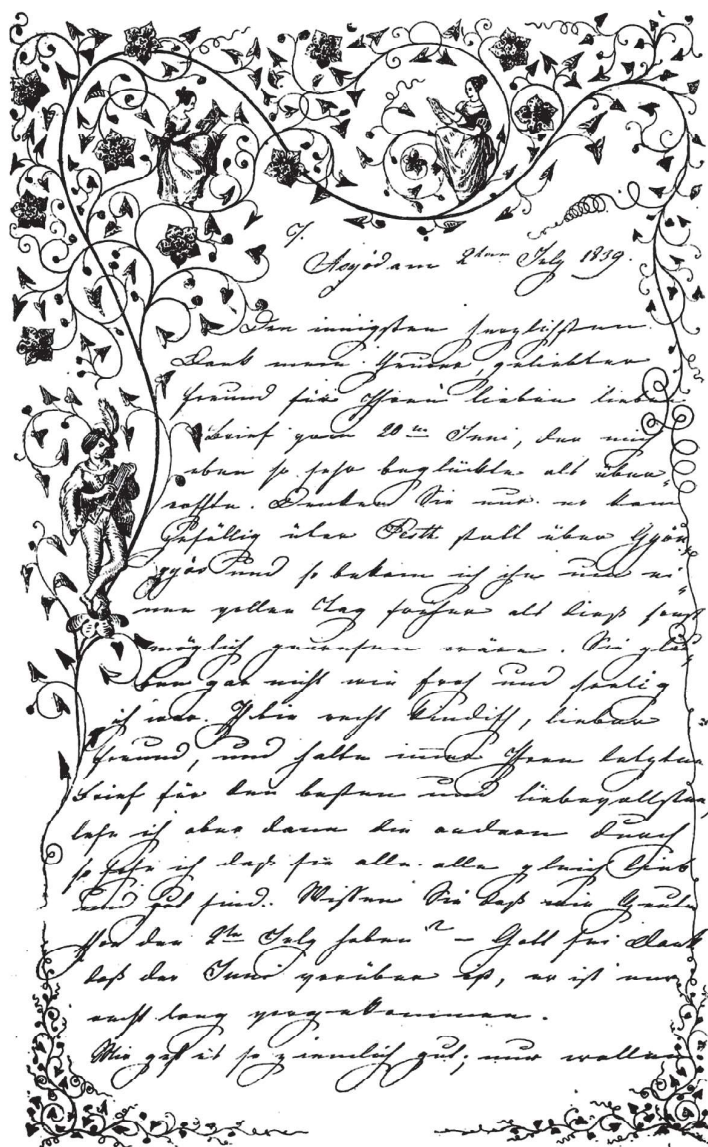 7.
Aszód am 2ten July 1839.
Den innigsten herzlichsten
Dank mein theurer, geliebter
Freund für Ihren lieben lieben
Brief vom 20ten Juni, der mich
eben so sehr beglückte als über-
raschte. Denken Sie nur er kam
zufällig über Pesth statt über Gyön
gyös und so bekam ich ihn um ei-
nen vollen Tag früher als dieß sonst
möglich gewesen wäre. Sie glau-
ben gar nicht wie froh und seelig
ich war. Ich bin recht kindisch, lieber
Freund, und halte immer Ihren letzten
Brief für den besten und liebevollsten,
lese ich aber dann die andern durch
so sehe ich daß sie alle alle gleich lieb
und gut sind. Wissen Sie daß wir heute
schon den 2ten July haben? – Gott sei Dank
daß der Juni vorüber ist, er ist mir
recht lang vorgekommen.
Mir geht es so ziemlich gut; nur wollen